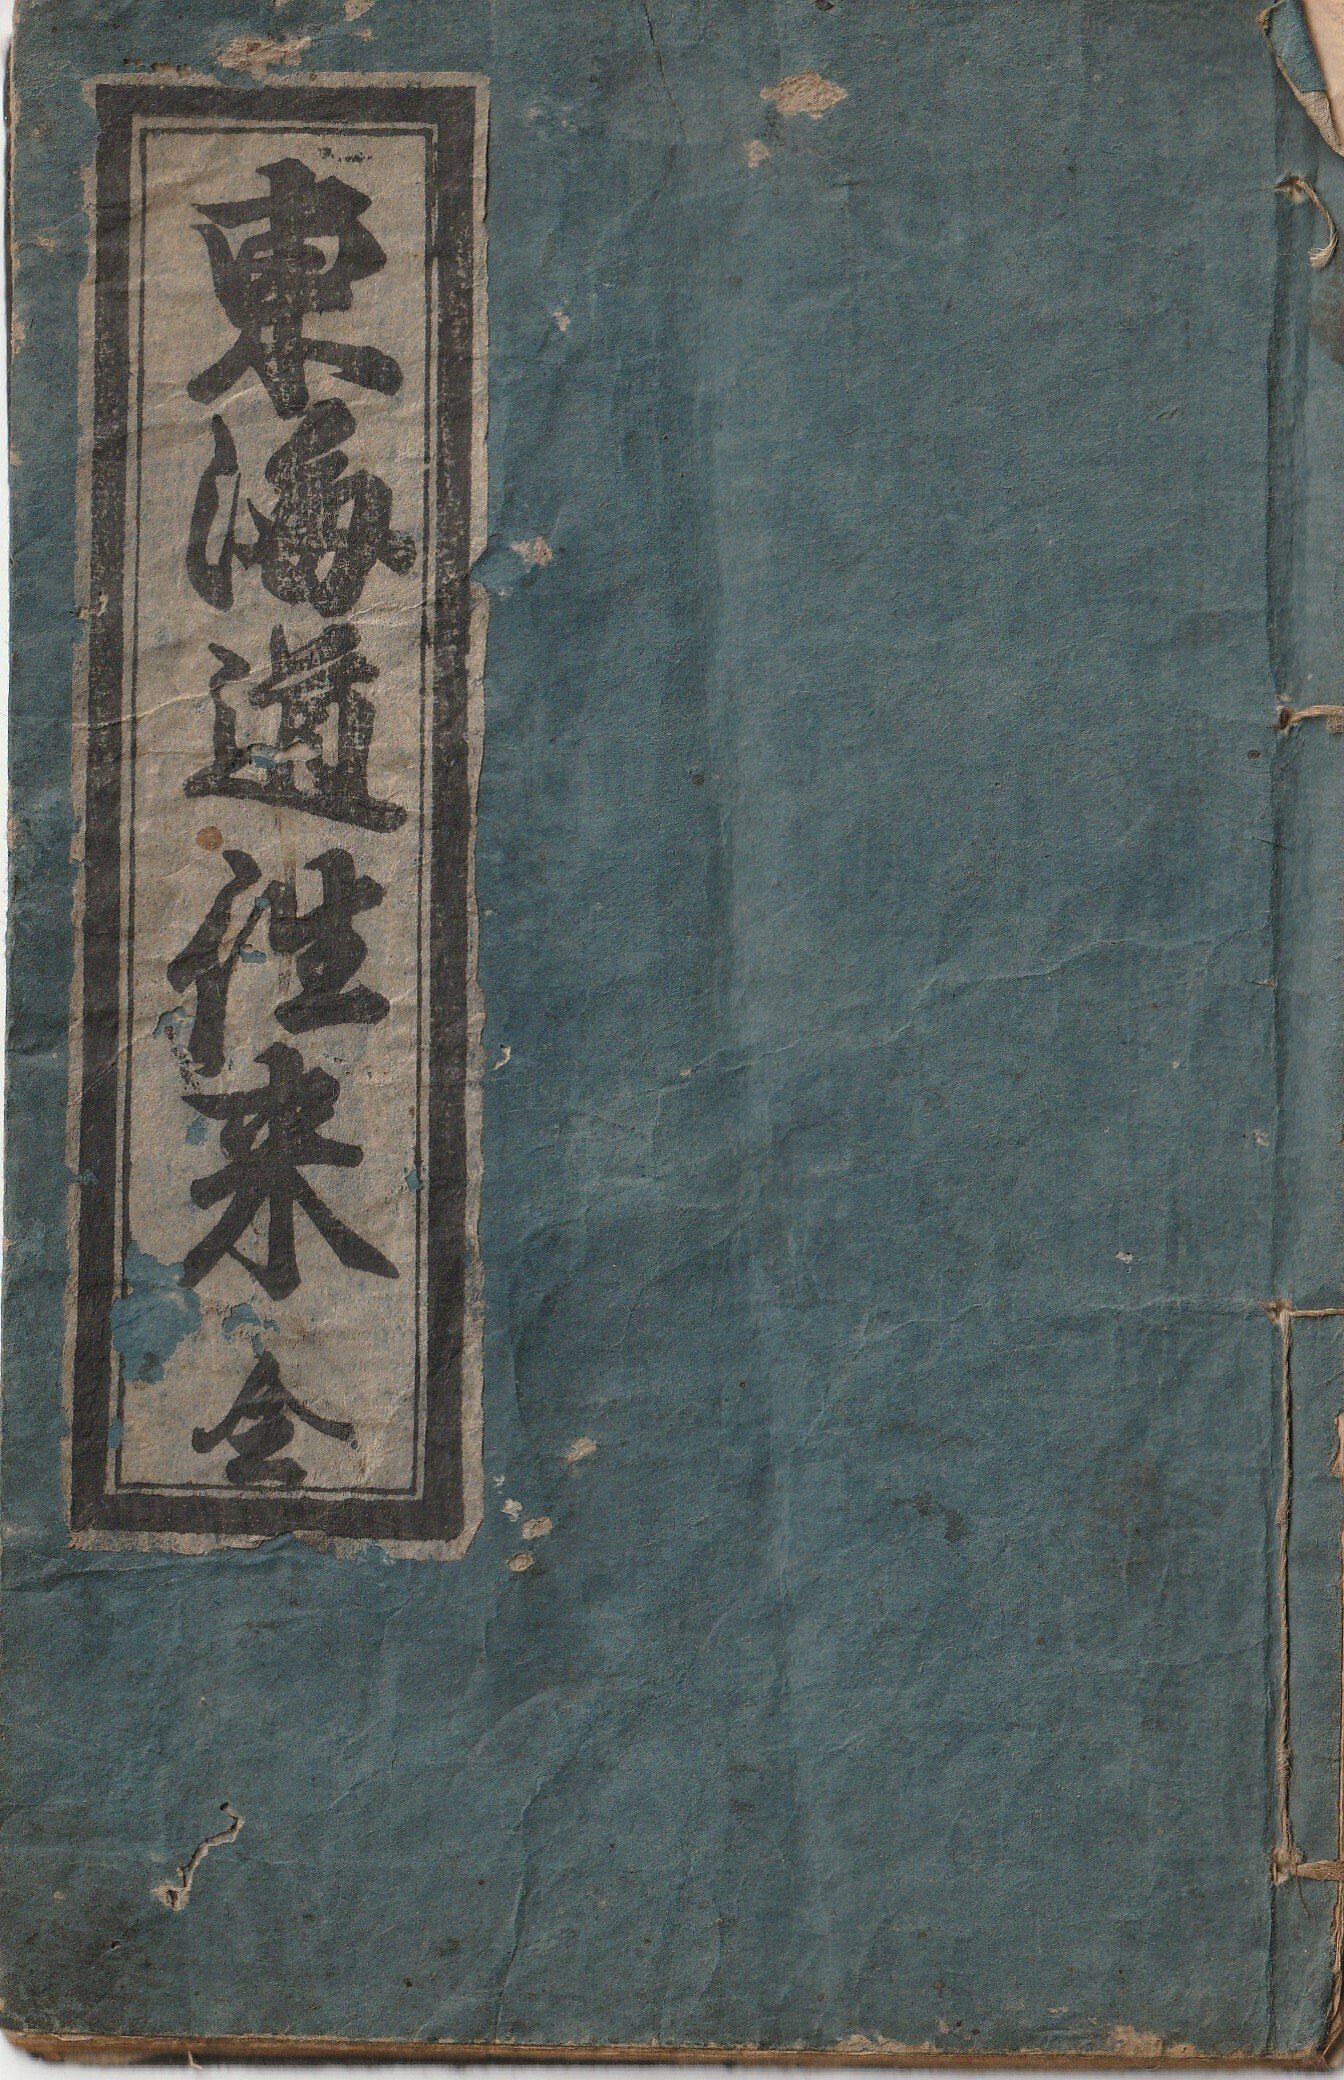 東海道徃来
全